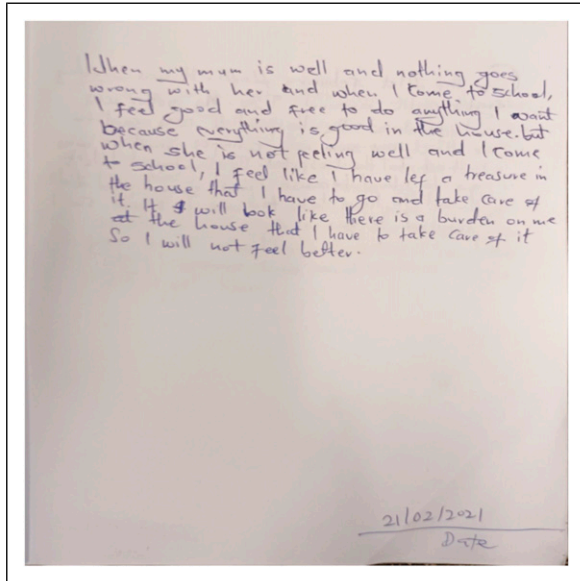 When my mum is well and nothing goes
wrong with her and when I come to school,
I feel good and free to do anything I want
because everything is good in the house. but
when she is not feeling well and I come
to school, I feel like I have lef a treasure in
the house that I have to go and take care of
it. It will look like there is a burden on me
at the house that I have to take care of it
So I will not feel better.
21/02/2021
Date